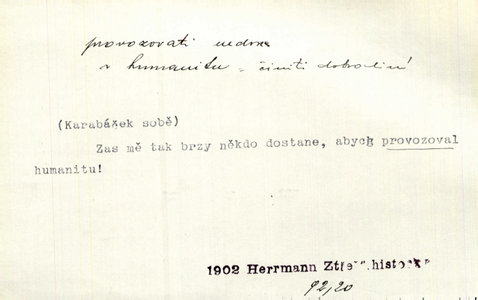 provozovati
humanitu činiti dobrodiní
(Karabáček sobě)
Zas mě tak brzy někdo dostane, abych provozoval
humanitu!
1902 Herrmann
92,20